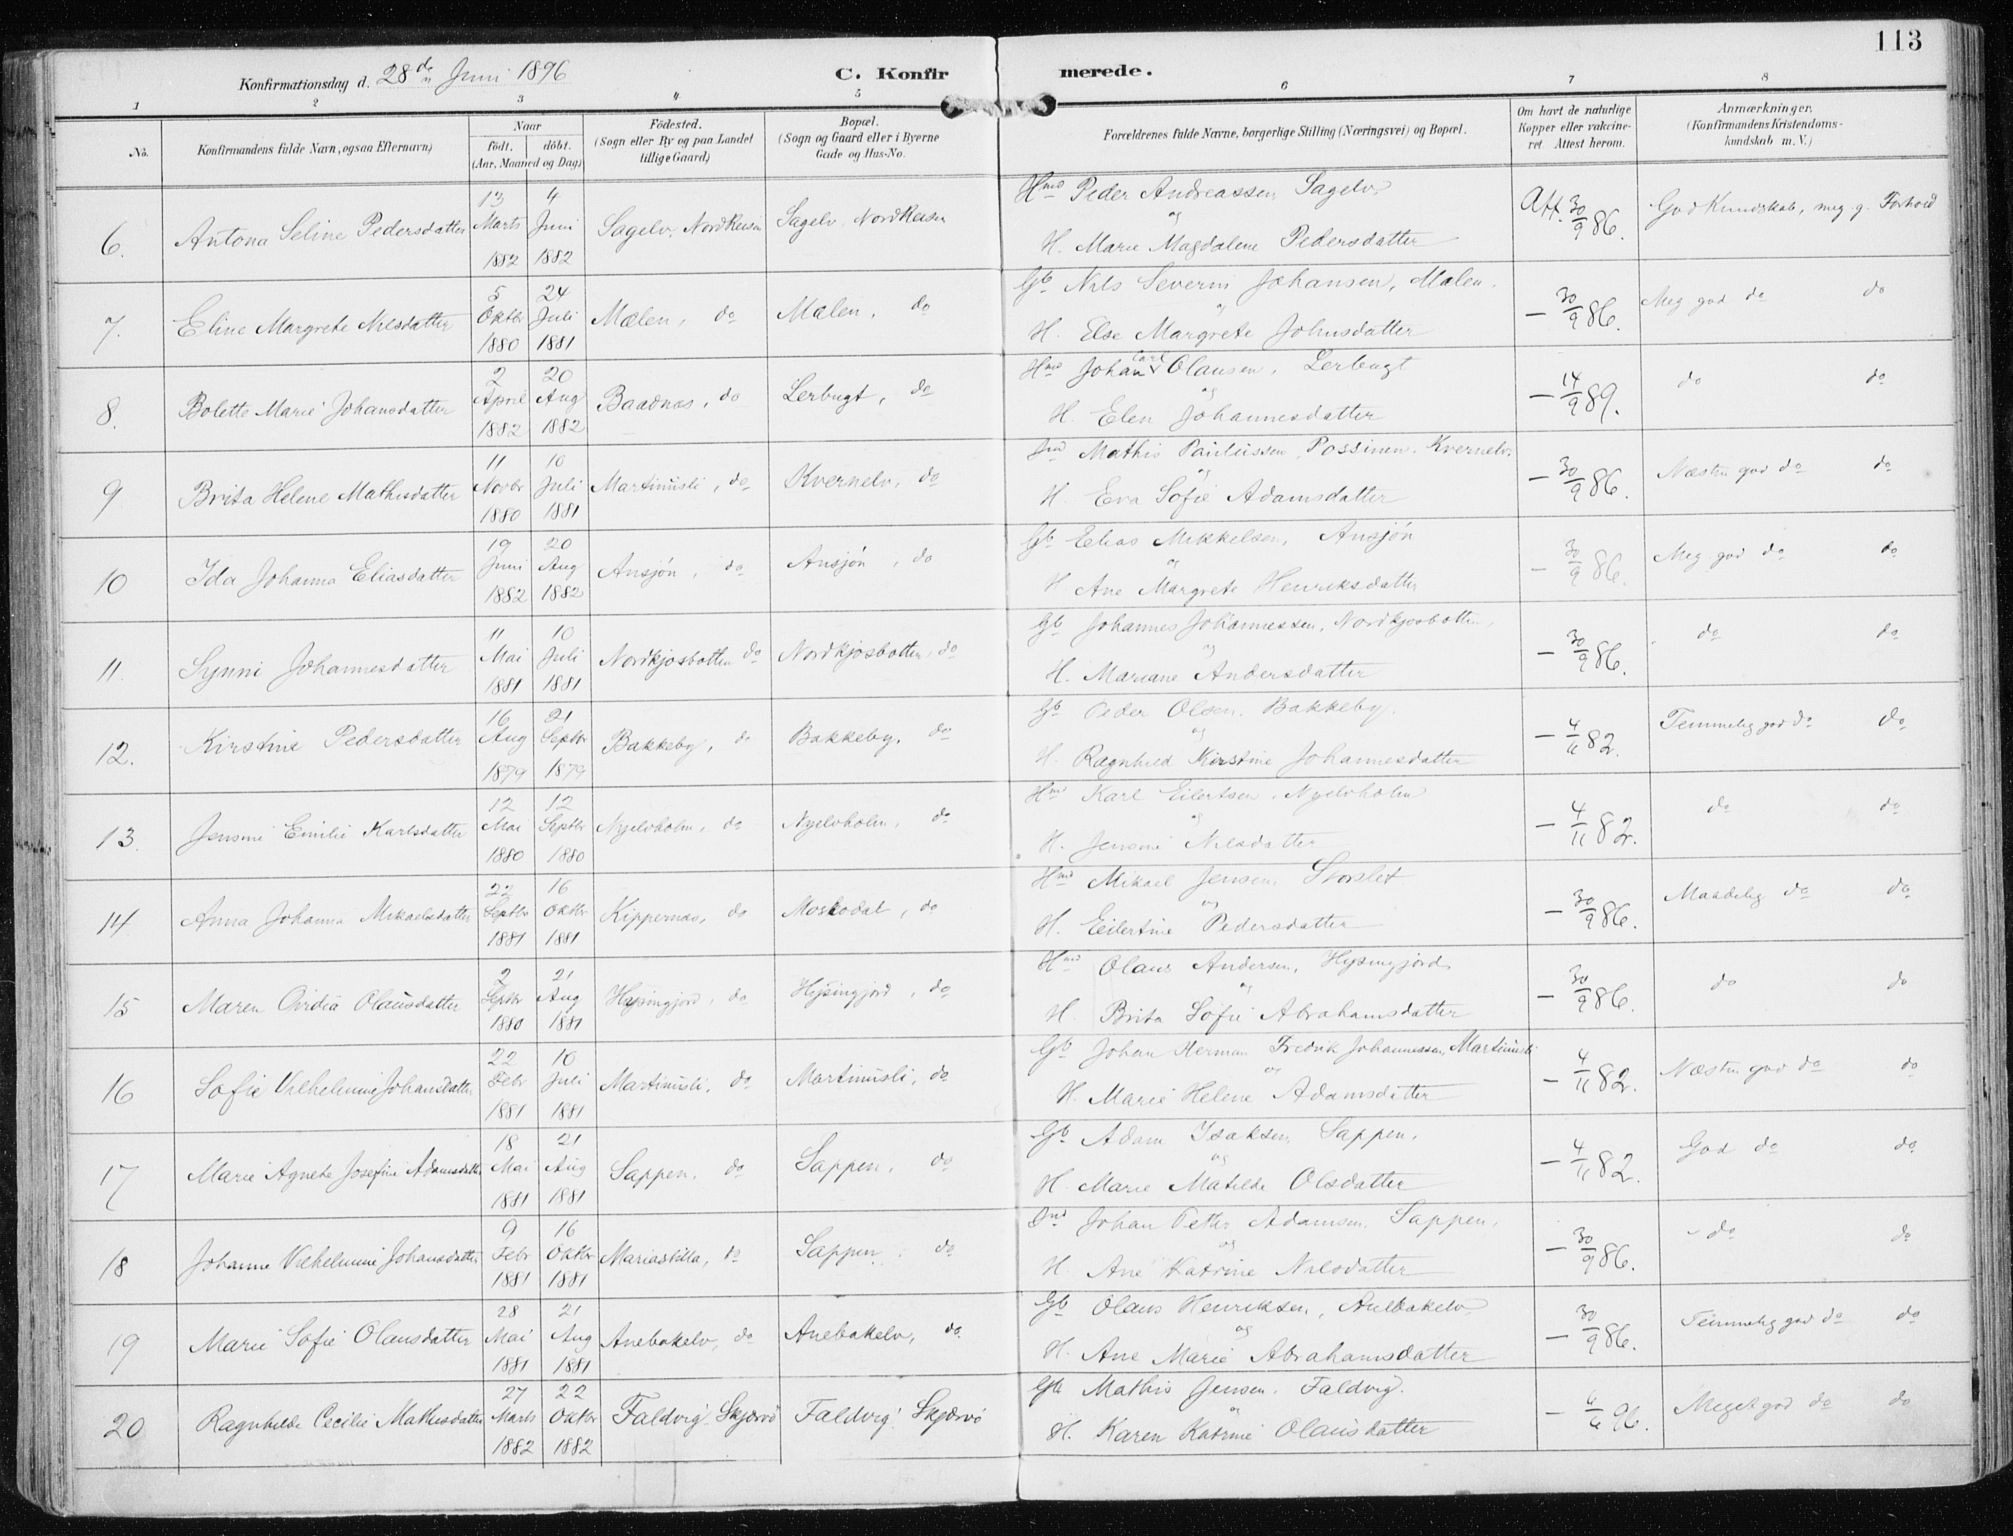 113
Konfirmationsdag d. 28de Juni 1896 C. Konfirmerede.
1 2 3 4 5 6 7 8
No. Konfirmandens fulde Navn, ogsaa Efternavn) Naar født. døbt. (Aar, Maaned og Dag) Fødested. (Sogn eller By og paa Landet tillige Gaard) Bopæl. (Sogn og Gaard eller i Byerne Gade og Hus-No. Forældrenes fulde Navne, borgerlige Stilling (Næringsvei) og Bopæl. Om havt de naturlige Kopper eller vakcineret Attest herom. Anmærkninger. (Konfirmandens Kristendomskundskab m. V.)
6. Antona Seline Pedersdatter 13 Marts 1882 4 Juni 1882 Sagelv, NordReisen Sagelv, NordReisen Hmd Peder Andreassen Sagelv
og
H. Marie Magdalene Pedersdatter Att. 30/9 86. God Kundskab, meg. g. Forhold
7. Eline Margrete Nilsdatter 5 Oktbr 1880 24 Juli 1881 Mælen, do Mælen, do Gb Nils Severin Johansen, Mælen.
og
H. Else Margrete Johnsdatter - 30/9 86. Meg god do do
8. Bolette Marie Johansdatter 2 April 1882 20 Aug 1882 Baadnæs, do Lerbugt, do Hmd Johan Carl Olausen, Lerbugt
og
H. Elen Johannesdatter - 14/9 89. do do
9 Brita Helene Mathisdatter 11 Novbr 1880 10 Juli 1881 Martinusli, do Kvernelv, do Ind Mathis Paulussen Possinen, Kvernelv.
og
H. Eva Sofie Adamsdatter - 30/9 86. Næsten god do do
10 Ida Johanna Eliasdatter 19 Juni 1882 20 Aug 1882 Ansjøn, do Ansjøn, do Gb Elias Mikkelsen, Ansjøn
og
H. Ane Margrete Henriksdatter - 30/9 86. Meg god do do
11. Synni Johannesdatter 11 Mai 1881 10 Juli 1881 Nordkjosbotten do Nordkjosbotten, do Gb Johannes Johannessen, Nordkjosbotten,
og
H. Mariane Andersdatter - 30/9 86. do do
12. Kirstine Pedersdatter 16 Aug 1879 21 Septbr 1879 Bakkeby, do Bakkeby, do Gb Peder Olsen, Bakkeby.
og
H. Ragnhild Kirstine Johannesdatter - 4/11 82. Temmelig god do do
13. Jensine Emilie Karlsdatter 12 Mai 1880 12 Septbr 1880 Nyelvholm, do Nyelvholm, do Hmd Karl Eilertsen, Nyelvholm
og
H. Jensine Nilsdatter - 4/11 82. do do
14 Anna Johanna Mikaelsdatter 22 Septbr 1881 16 Oktbr 1881 Kippernæs, do Moskodal, do Hmd Mikael Jensen, Storslet
og
H. Eilertine Pedersdatter - 30/9 86. Maadelig do do
15 Maren Ovidia Olausdatter 2 Septbr 1880 21 Aug 1881 Hysingjord, do Hysingjord, do Hmd Olaus Andersen, Hysingjord,
og
H. Brita Sofie Abrahamsdatter - 30/9 86. do do
16 Sofie Vilhelmine Johansdatter 22 Febr 1881 10 Juli 1881 Martinusli, do Martinusli, do Gb Johan Herman Fredrik Johannessen, Martinusli
og
H. Marie Helene Adamsdatter - 4/11 82. Næsten god do do
17 Marie Agnete Josefine Adamsdatter 18 Mai 1881 21 Aug 1881 Sappen, do Sappen, do Gb Adam Isaksen, Sappen.
og
H. Marie Matilde Olsdatter - 4/11 82. God do do
18 Johanne Vilhelmine Johansdatter 9 Febr 1881 16 Oktbr 1881 Mariastilla, do Sappen, do Ind Johan Peter Adamsen, Sappen,
og
H. Ane Katrine Nilsdatter - 30/9 86. - do do
19 Marie Sofie Olausdatter 28 Mai 1881 21 Aug 1881 Anebakelv, do Anebakelv, do Gb Olaus Henriksen, Anebakelv
og
H. Ane Marie Abrahamsdatter - 30/9 86. Temmelig god do do
20 Ragnhilde Cecilie Mathisdatter 27 Marts 1882 22 Oktbr 1882 Faldvig, Skjærvø Faldvig, Skjærvø Gb Mathis Jensen, Faldvig.
og
H. Karen Katrine Olausdatter - 6/6 96. Meget god do do